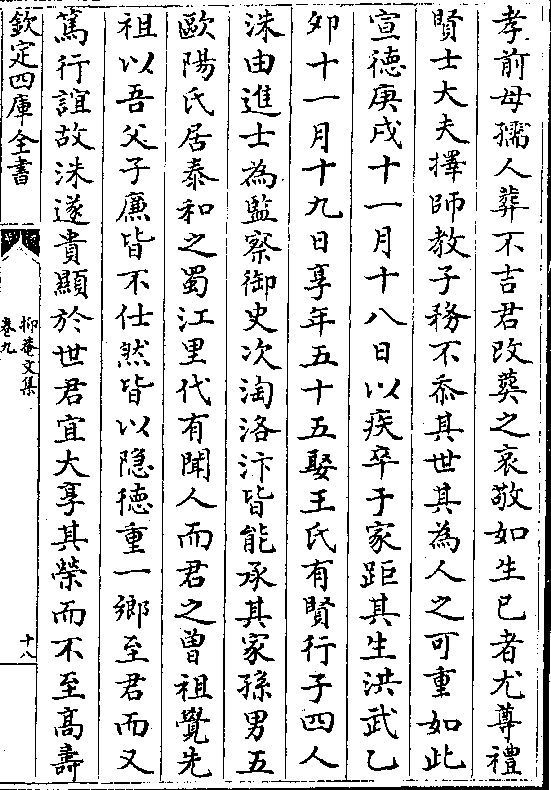 孝前母孺人葬不吉君改葬之哀敬如生已者尤尊禮
賢士大夫擇師教子務不忝其世其為人之可重如此
宣徳庚戌十一月十八日以疾卒于家距其生洪武乙
夘十一月十九日享年五十五娶王氏有賢行子四人
洙由進士為監察御史次淘洛汴皆能承其家孫男五
歐陽氏居泰和之蜀江里代有聞人而君之曽祖覺先
祖以吾父子㢘皆不仕然皆以隠徳重一鄉至君而又
篤行誼故洙遂貴顯於世君宜大享其榮而不至髙壽
欽定四庫全書
抑菴文集
卷九
十八